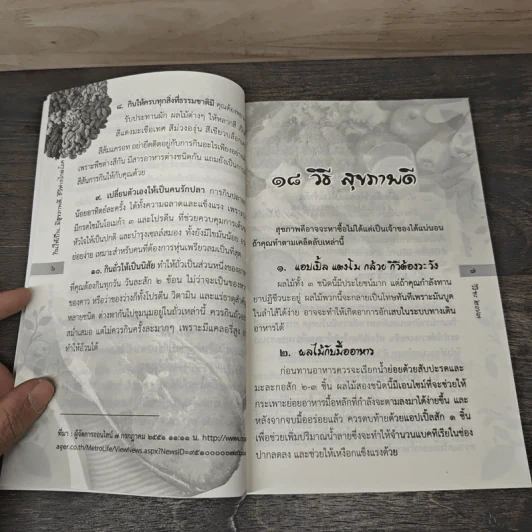 ๘. กินให้ครบทุกสิ่งที่ธรรมชาติมี
รับประทานผัก ผลไม้ต่างๆ ให้หลากสี
สีแดงมะเขือเทศ สีม่วงองุ่น สีเขียวบล็อก
สีส้มแครอท อย่ายึดติดอยู่กับการกินอะไรเพียงอย่าง
เพราะพืชต่างสีกัน มีสารอาหารต่างชนิดกัน แถมยังเป็นการ
สีสันการกินให้กับคุณด้วย
๙. เปลี่ยนตัวเองให้เป็นคนรักปลา การกินปลา
น้อยอาทิตย์ละครั้ง ได้ทั้งความฉลาดและแข็งแรง เพราะ
มีกรดไขมันโอเมก้า ๓ และโปรตีน ที่ช่วยควบคุมการเต้น
หัวใจให้เป็นปกติ และบำรุงเซลล์สมอง ทั้งยังมีไขมันน้อย
ย่อยง่าย เหมาะสำหรับคนที่ต้องการหุ่นเพรียวลมเป็นที่สุด
๑๐. กินถั่วให้เป็นนิสัย ทำให้ถั่วเป็นส่วนหนึ่งของอาหาร
ที่คุณต้องกินทุกวัน วันละสัก ๒ ช้อน ไม่ว่าจะเป็นของหวาน
ของคาว หรือว่าของว่างก็ทั้งโปรตีน วิตามิน และแร่ธาตุสำคัญ
หลายชนิด ต่างพากันไปชุมนุมอยู่ในถั่วเหล่านี้ ควรกินถั่ว
สม่ำเสมอ แต่ไม่ควรกินครั้งละมากๆ เพราะมีแคลอรี่สูง
ทำให้อ้วนได้
ที่มา : ผู้จัดการออนไลน์ ๗ กรกฎาคม ๒๕๕๑ ๑๑:๑๑ น. http://www.
ager.co.th/MetroLife/ViewNews.aspx?NewsID=
๖
๑๘ วิธี สุขภาพดี
สุขภาพดีอาจจะหาซื้อไม่ได้แต่เป็นเจ้าของได้แน่นอน
ถ้าคุณทำตามเคล็ดลับเหล่านี้
๑. แอปเปิ้ล แตงโม กล้วย กีวีต้องระวัง
ผลไม้ทั้ง ๓ ชนิดนี้มีประโยชน์มาก แต่ถ้าคุณกำลังทาน
ยาปฏิชีวนะอยู่ ผลไม้พวกนี้จะกลายเป็นโทษทันทีเพราะมันบูด
ในลำไส้ได้ง่าย อาจจะทำให้เกิดอาการอักเสบในระบบทางเดิน
อาหารได้
๒. ผลไม้กับมื้ออาหาร
ก่อนทานอาหารควรจะเรียกน้ำย่อยด้วยสับปะรดและ
มะละกอสัก ๒-๓ ชิ้น ผลไม้สองชนิดนี้มีเอนไซม์ที่จะช่วยให้
กระเพาะย่อยอาหารมื้อหลักที่กำลังจะตามลงมาได้ง่ายขึ้น และ
หลังจากจบมื้ออร่อยแล้ว ควรตบท้ายด้วยแอปเปิ้ลสัก ๑ ชิ้น
เพื่อช่วยเพิ่มปริมาณน้ำลายซึ่งจะทำให้จำนวนแบคทีเรียในช่อง
ปากลดลง และช่วยให้เหงือกแข็งแรงด้วย
๗